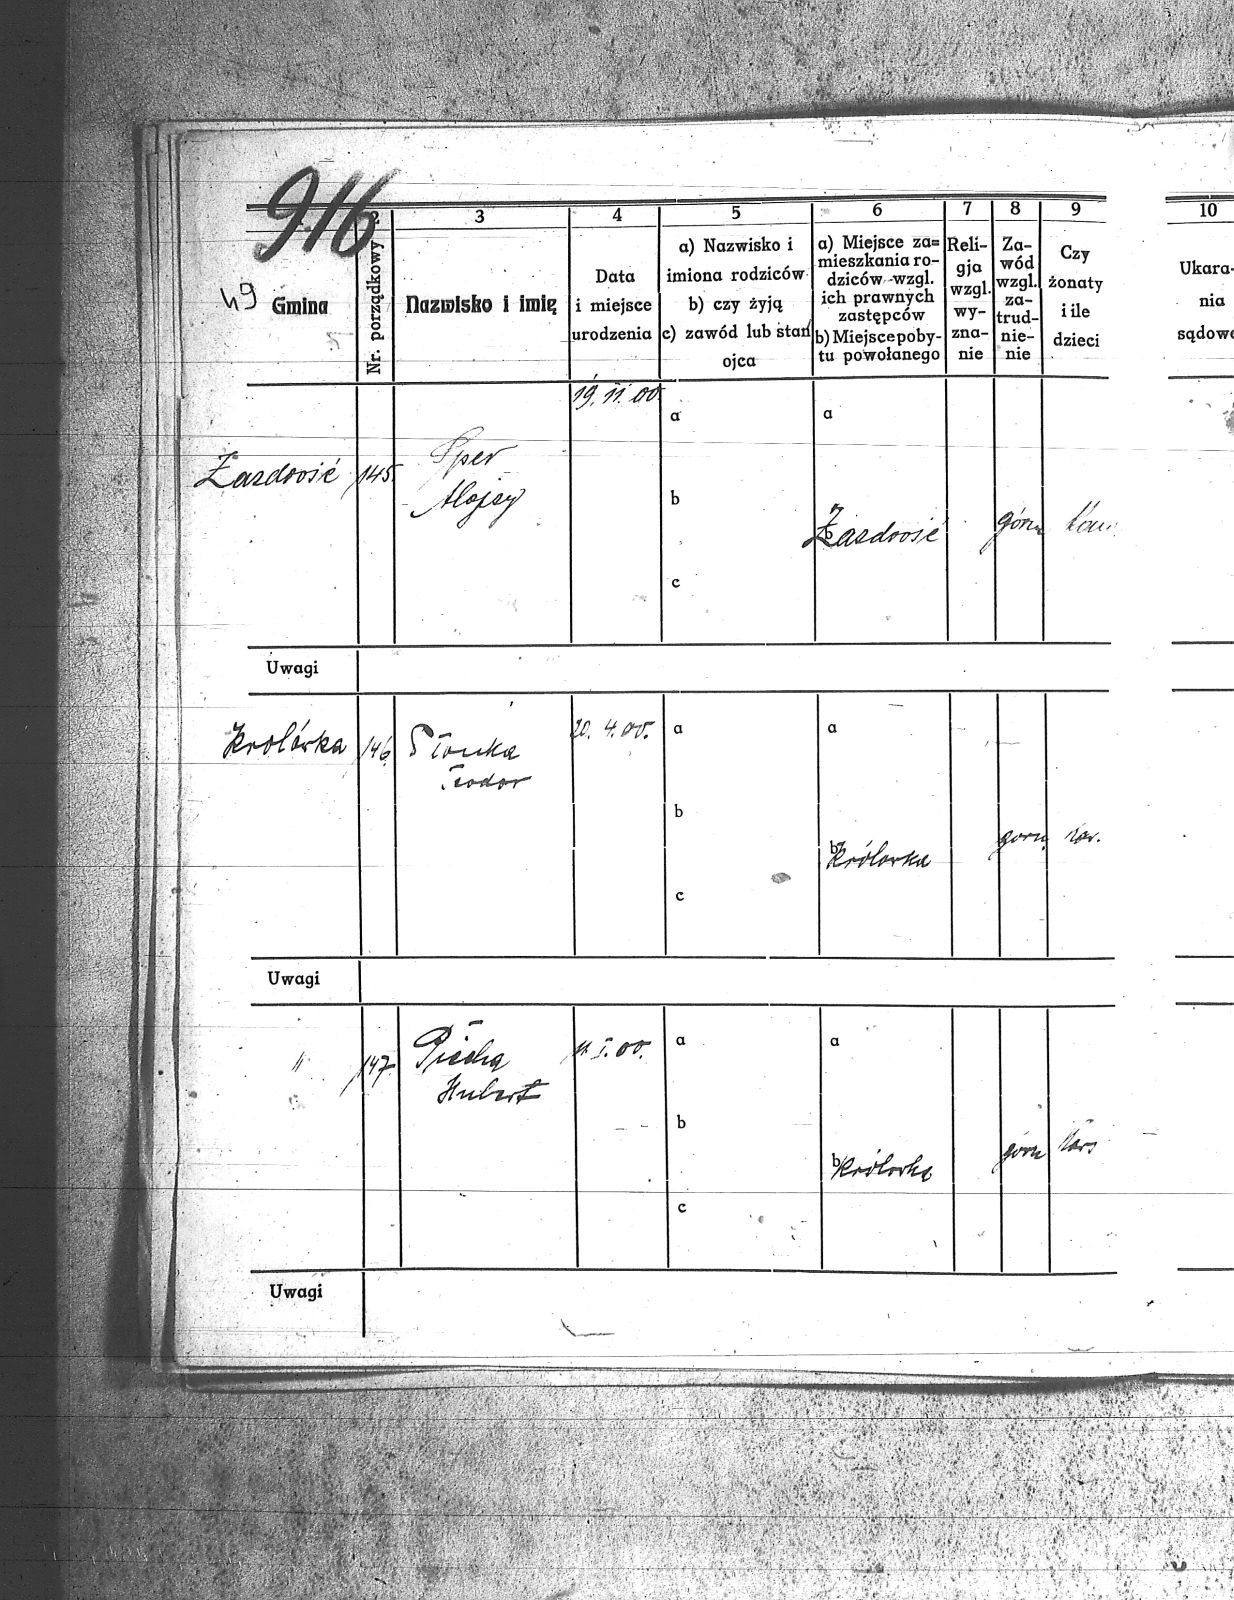 916
49
2 3 4 5 6 7 8 9 10
Gmina
Nr. porządkowy
Nazwisko i imię
Data
i miejsce
urodzenia
a) Nazwisko i
imiona rodziców
b) czy żyją
c) zawód lub stan
ojca
a) Miejsce za=
mieszkania ro-
dziców wzgl.
ich prawnych
zastępców
b) Miejsce poby-
tu powołanego
Reli-
gja
wzgl.
wy-
zna-
nie
Za-
wód
wzgl.
za-
trud-
nie-
nie
Czy
żonaty
i ile
dzieci
Ukara-
nia
sądowe
19. II. 00.
a a
Zazdrość 145. Sper
Alojzy
b
Zazdrość górn
c
Uwagi
Królówka 146 Słonka 20. 4. 00. a a
Teodor
b
b Królowka górn. kaw.
c
Uwagi
" 147 Piecha I. 00. a a
Hubert
b
b Królowka górn
c
Uwagi